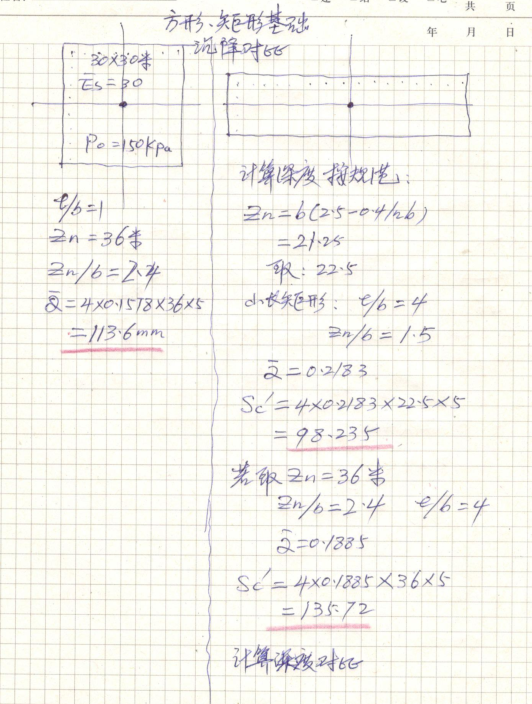 共 页
年 月 日
方形、矩形基础
沉降对比
30×30米
Es=30
P0=150Kpa
l/b=1
Zn=36米
Zn/b=2.4
ā=4×0.1578×36×5
=113.6mm
计算深度按规范:
Zn=b(2.5-0.4lnb)
=21.25
取:22.5
小长矩形: l/b=4
Zn/b=1.5
ā=0.2183
Sc'=4×0.2183×22.5×5
=98.235
若取Zn=36米
Zn/b=2.4 l/b=4
ā=0.1885
Sc'=4×0.1885×36×5
=135.72
计算深度对比